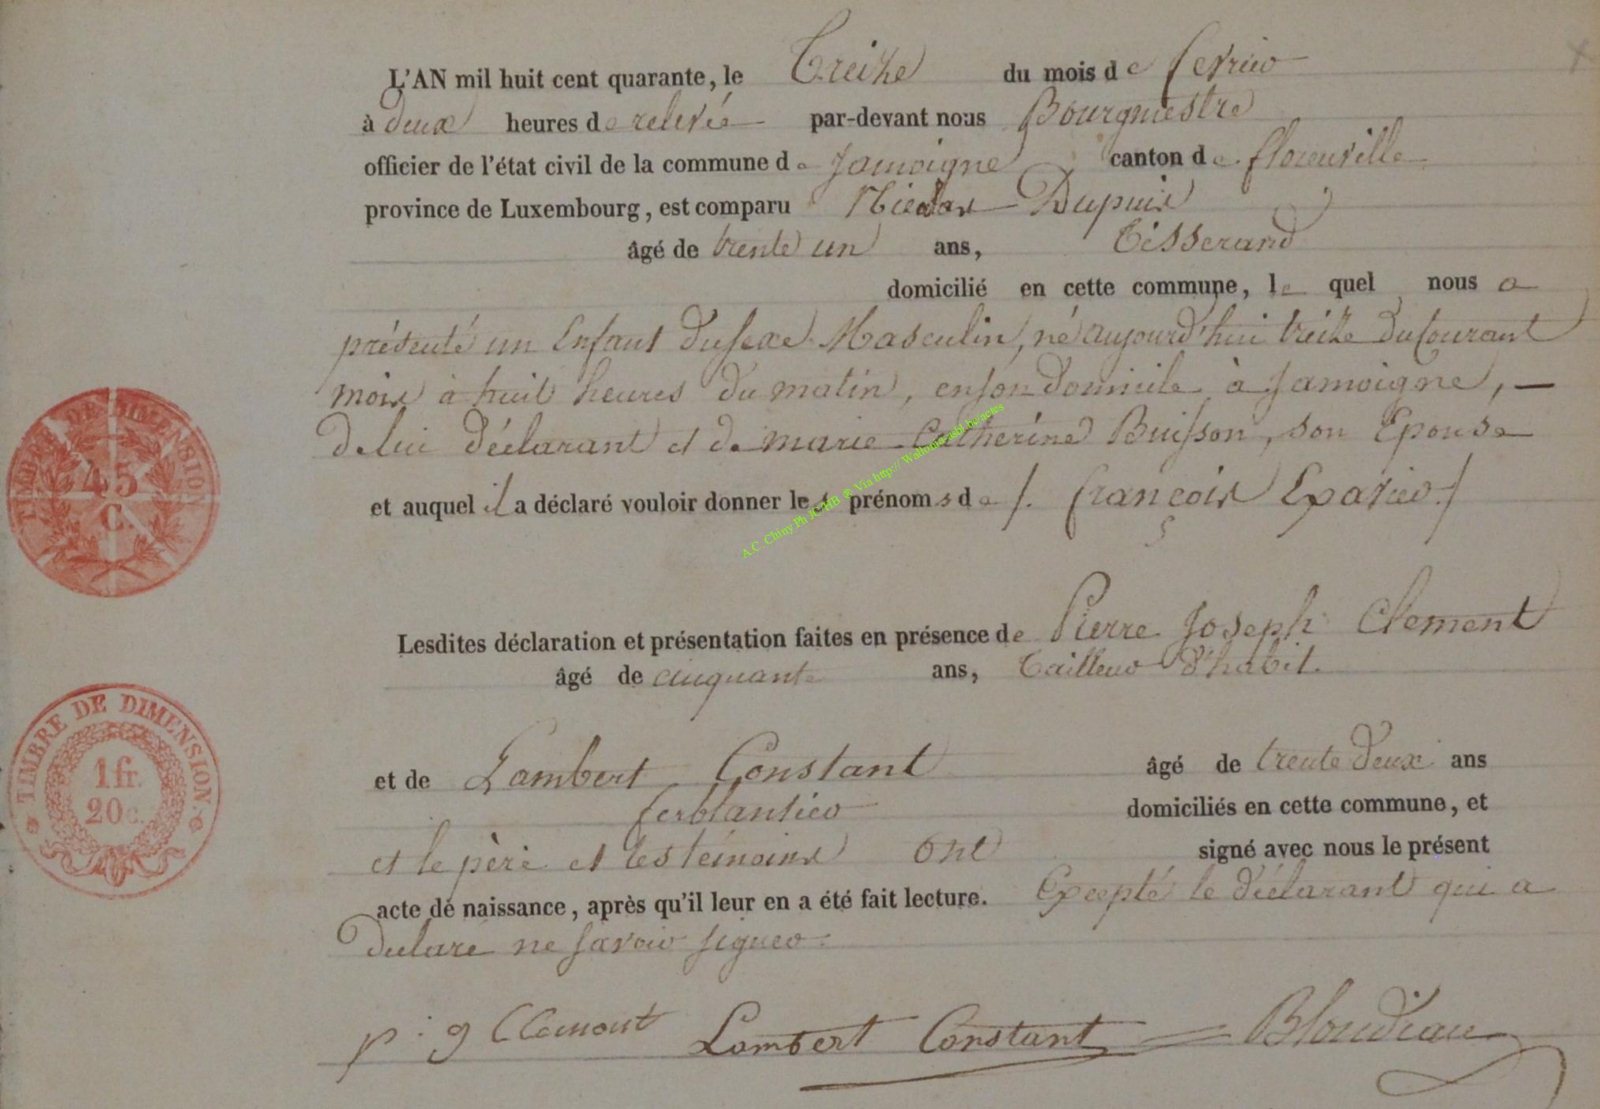 L'AN mil huit cent quarante, le Treize du mois de fevrier
à deux heures de relevée par-devant nous Bourgmestre
officier de l'état civil de la commune de Jamoigne canton de florenville
province de Luxembourg, est comparu Nicolas Dupuis
âgé de trente un ans, Tisserand
domicilié en cette commune, le quel nous a
présenté un Enfant du sexe Masculin, né aujourd'hui treize du Courant
mois à huit heures du matin, en son domicile à Jamoigne, —
de lui déclarant et de marie Catherine Buisson, son Epouse
et auquel il a déclaré vouloir donner les prénoms de /. françois Exavier /
Lesdites déclaration et présentation faites en présence de Pierre Joseph Clement
âgé de cinquante ans, Tailleur d'habit.
et de Lambert Constant âgé de trente deux ans
ferblantier domiciliés en cette commune, et
et le père et les témoins ont signé avec nous le présent
acte de naissance, après qu'il leur en a été fait lecture. Excepté le déclarant qui a
déclaré ne savoir signer.
p : g Clement Lambert Constant Blondiau
TIMBRE DE DIMENSION
45
C.
TIMBRE DE DIMENSION
1 fr.
20 c.
A.C. Chiny Ph JC HB @ Via http:// Wallonia-asbl.be/actes